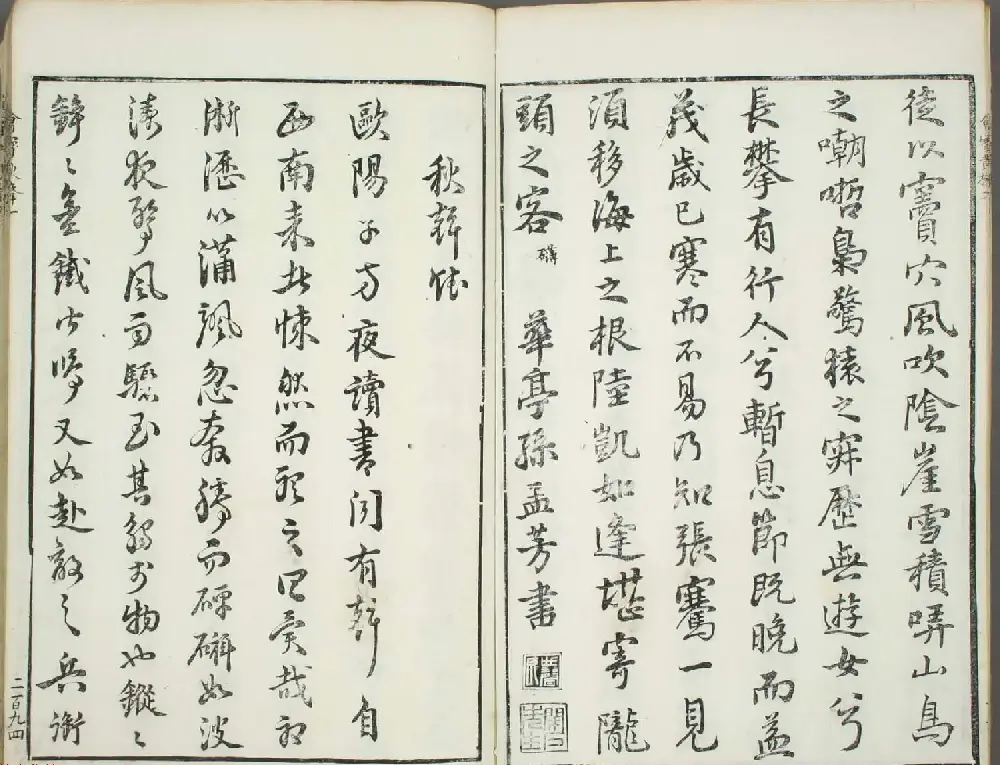 徒以竇穴風吹陰崖雪積哢山鳥
之嘲哳梟驚猿之寐歷無遊女兮
長攀有行人兮暫息節既晚而益
茂歲已寒而不易乃知張騫一見
須移海上之根陸凱如逢堪寄隴
頭之客 華亭孫孟芳書
秋聲賦
歐陽子方夜讀書聞有聲自
西南來者悚然而聽之曰異哉初
淅瀝以蕭颯忽奔騰而砰磞如波
濤夜驚風雨驟至其觸於物也鏦〻
錚〻金鐵皆鳴又如赴敵之兵銜
二百九四